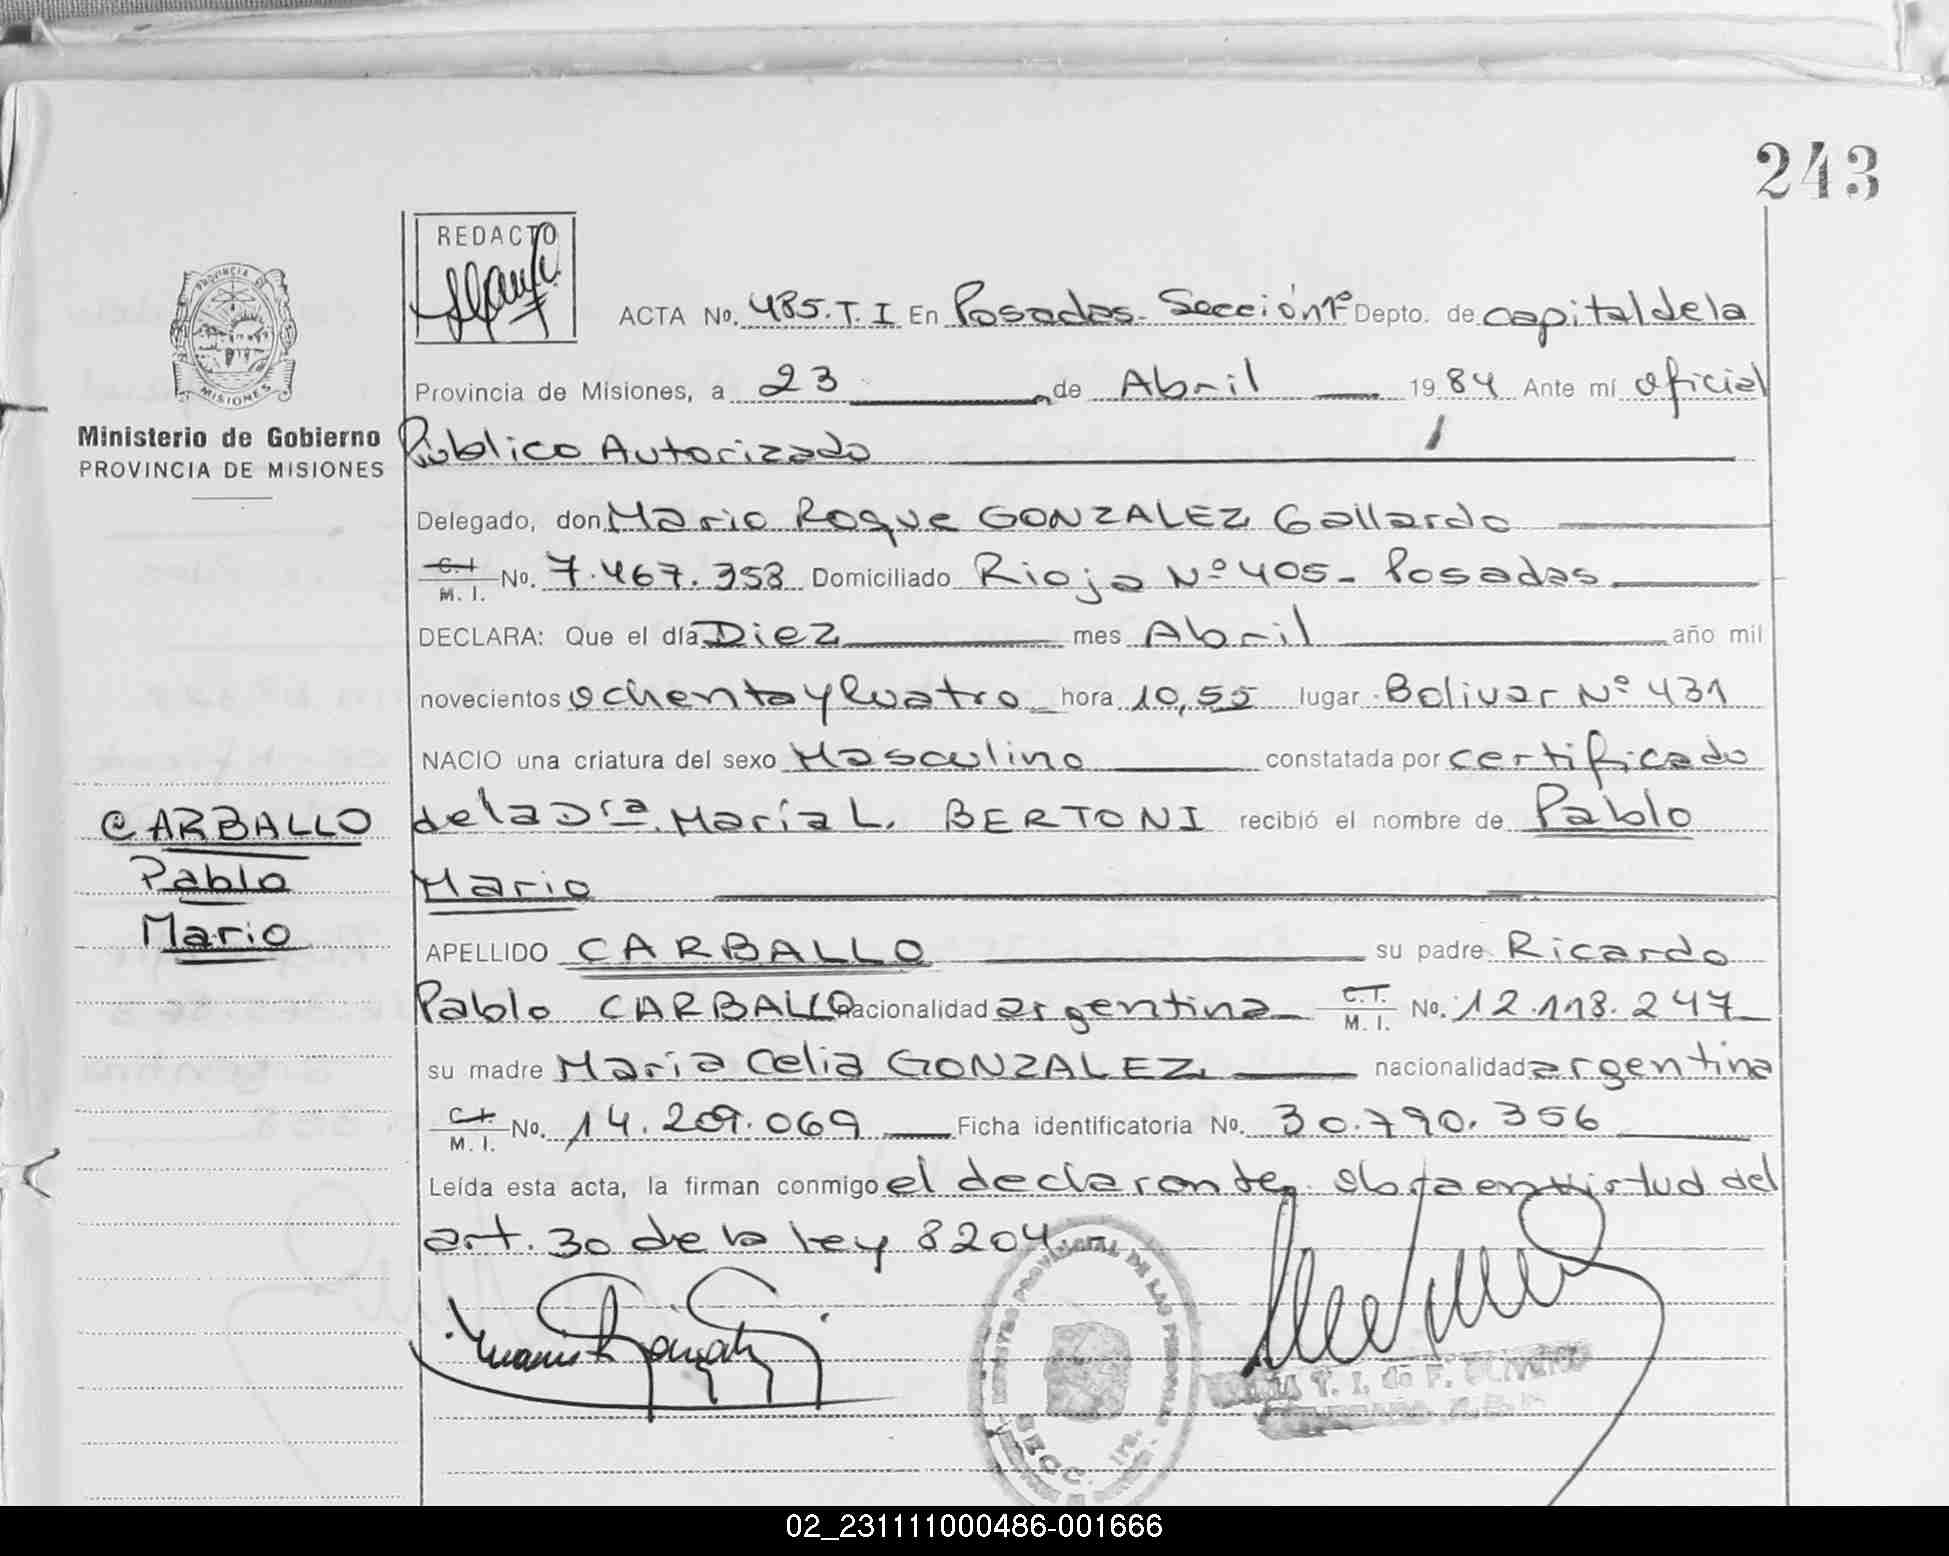 243
REDACTO
PROVINCIA DE
MISIONES
Ministerio de Gobierno
PROVINCIA DE MISIONES
ACTA No. 485.T.I En Posadas - Sección 1ª Depto. de capital de la
Provincia de Misiones, a 23 de Abril 1984 Ante mí oficial
Público Autorizado
Delegado, don Mario Roque GONZALEZ Gallardo
C.I M. I. No. 7.467.358 Domiciliado Rioja Nº 405- Posadas
DECLARA: Que el día Diez mes Abril año mil
novecientos ochenta y Cuatro hora 10,55 lugar Bolivar Nº 431
NACIO una criatura del sexo Masculino constatada por certificado
de la Dra. María L. BERTONI recibió el nombre de Pablo
Mario
CARBALLO
Pablo
Mario
APELLIDO CARBALLO su padre Ricardo
Pablo CARBALLO nacionalidad argentina C.I. M. I. No. 12.118.247
su madre María Celia GONZALEZ nacionalidad argentina
C.I. M. I. No. 14.209.069 Ficha identificatoria No. 30.790.356
Leída esta acta, la firman conmigo el declarante, obra en virtud del
art. 30 de la ley 8204-
PROVINCIAL DE LAS PERSONAS
SECC. 1ra.
T. I. de F.
02_231111000486-001666